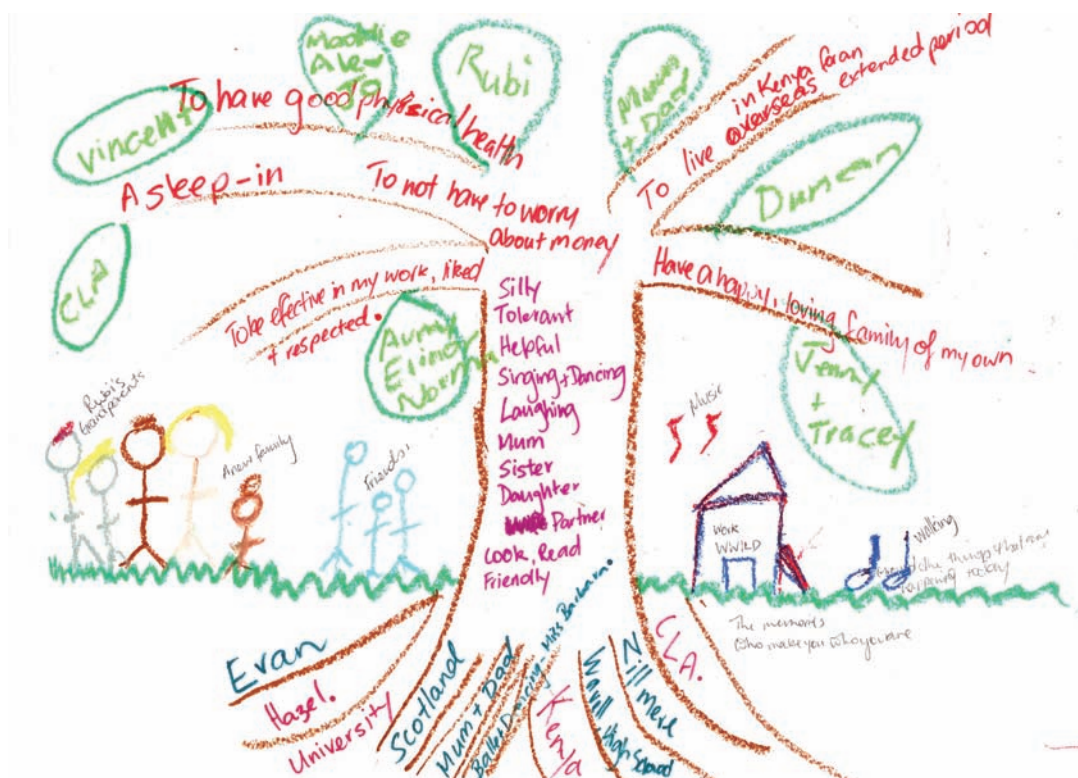 Maddie
Alex
Rubi
Mum
+ Dad
in Kenya for an
overseas extended period
To live
To have good physical health
Vincent
A sleep-in
To not have to worry
about money
Duncan
To be effective in my work, liked
+ respected.
Have a happy, loving family of my own
Elinor
Norma
Jenny
+
Tracey
Silly
Tolerant
Helpful
Singing + Dancing
Laughing
Mum
Sister
Daughter
Partner
Cook, Read
Friendly
Rubi's
Grandparents
A new family
Friends
Music
Work
WWILD
walking
happening today
The memories
who make you who you are
Evan
Hazel.
University
Scotland
Mum + Dad
Ballet Dancing - Miss Barbara.
Kenya
Wavell High School
Zillmere
CLA.